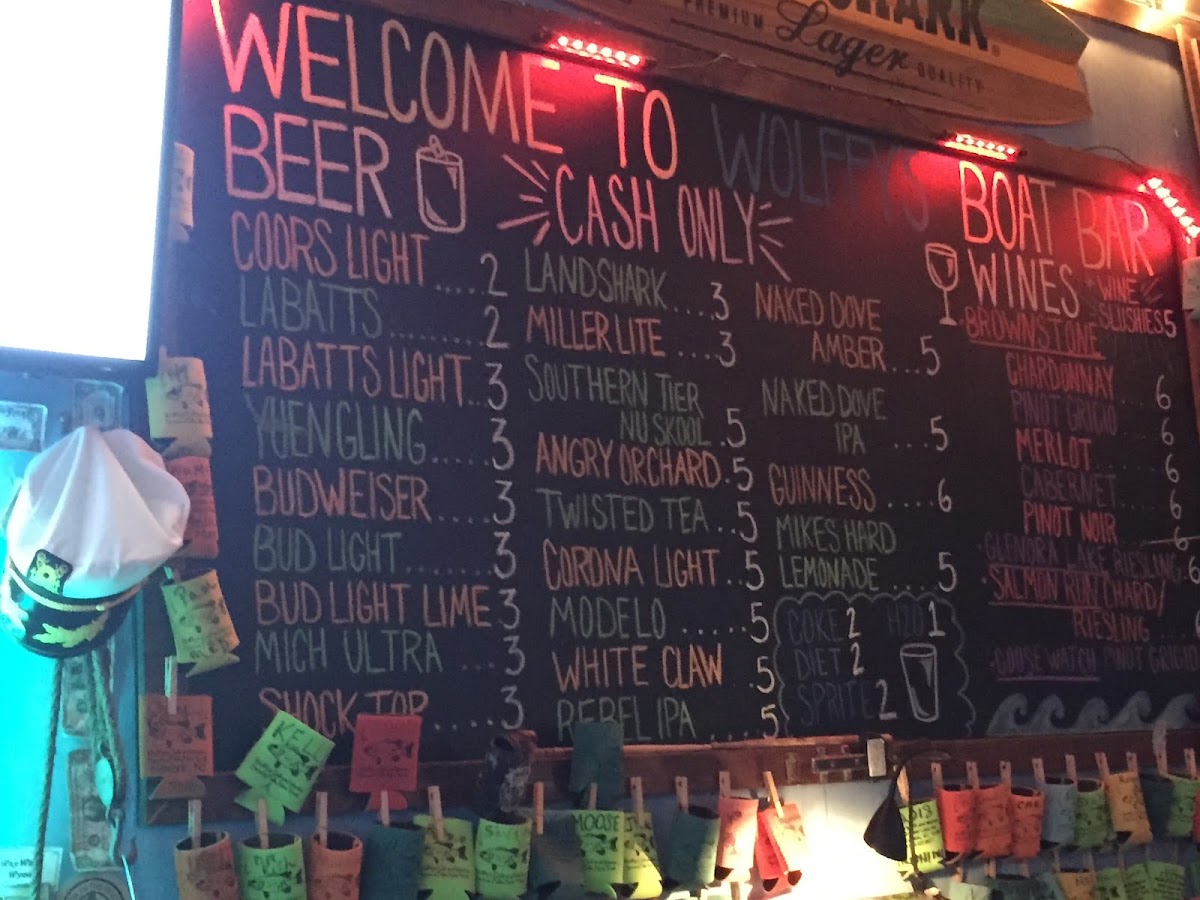 SHARK
PREMIUM Lager QUALITY
WELCOME TO WOLFFYS BOAT BAR
BEER
CASH ONLY
COORS LIGHT.....2
LABATTS........2
LABATTS LIGHT...3
YUENGLING.....3
BUDWEISER.....3
BUD LIGHT........3
BUD LIGHT LIME 3
MICH ULTRA ...3
SHOCK TOP ....3
LANDSHARK....3
MILLER LITE ...3
SOUTHERN TIER
NU SKOOL .5
ANGRY ORCHARD.5
TWISTED TEA..5
CORONA LIGHT..5
MODELO .....5
WHITE CLAW .5
REBEL IPA ....5
NAKED DOVE
AMBER...5
NAKED DOVE
IPA ....5
GUINNESS ....6
MIKES HARD
LEMONADE ....5
COKE 2 H2O 1
DIET 2
SPRITE 2
WINES
WINE
SLUSHIES 5
BROWNSTONE
CHARDONNAY ... 6
PINOT GRIGIO 6
MERLOT ..... 6
CABERNET.... 6
PINOT NOIR 6
GLENORA LAKE RIESLING. 6
SALMON RUN CHARD/
RIESLING ....
GOOSE WATCH PINOT GRIGIO
KELLI
MOOSE